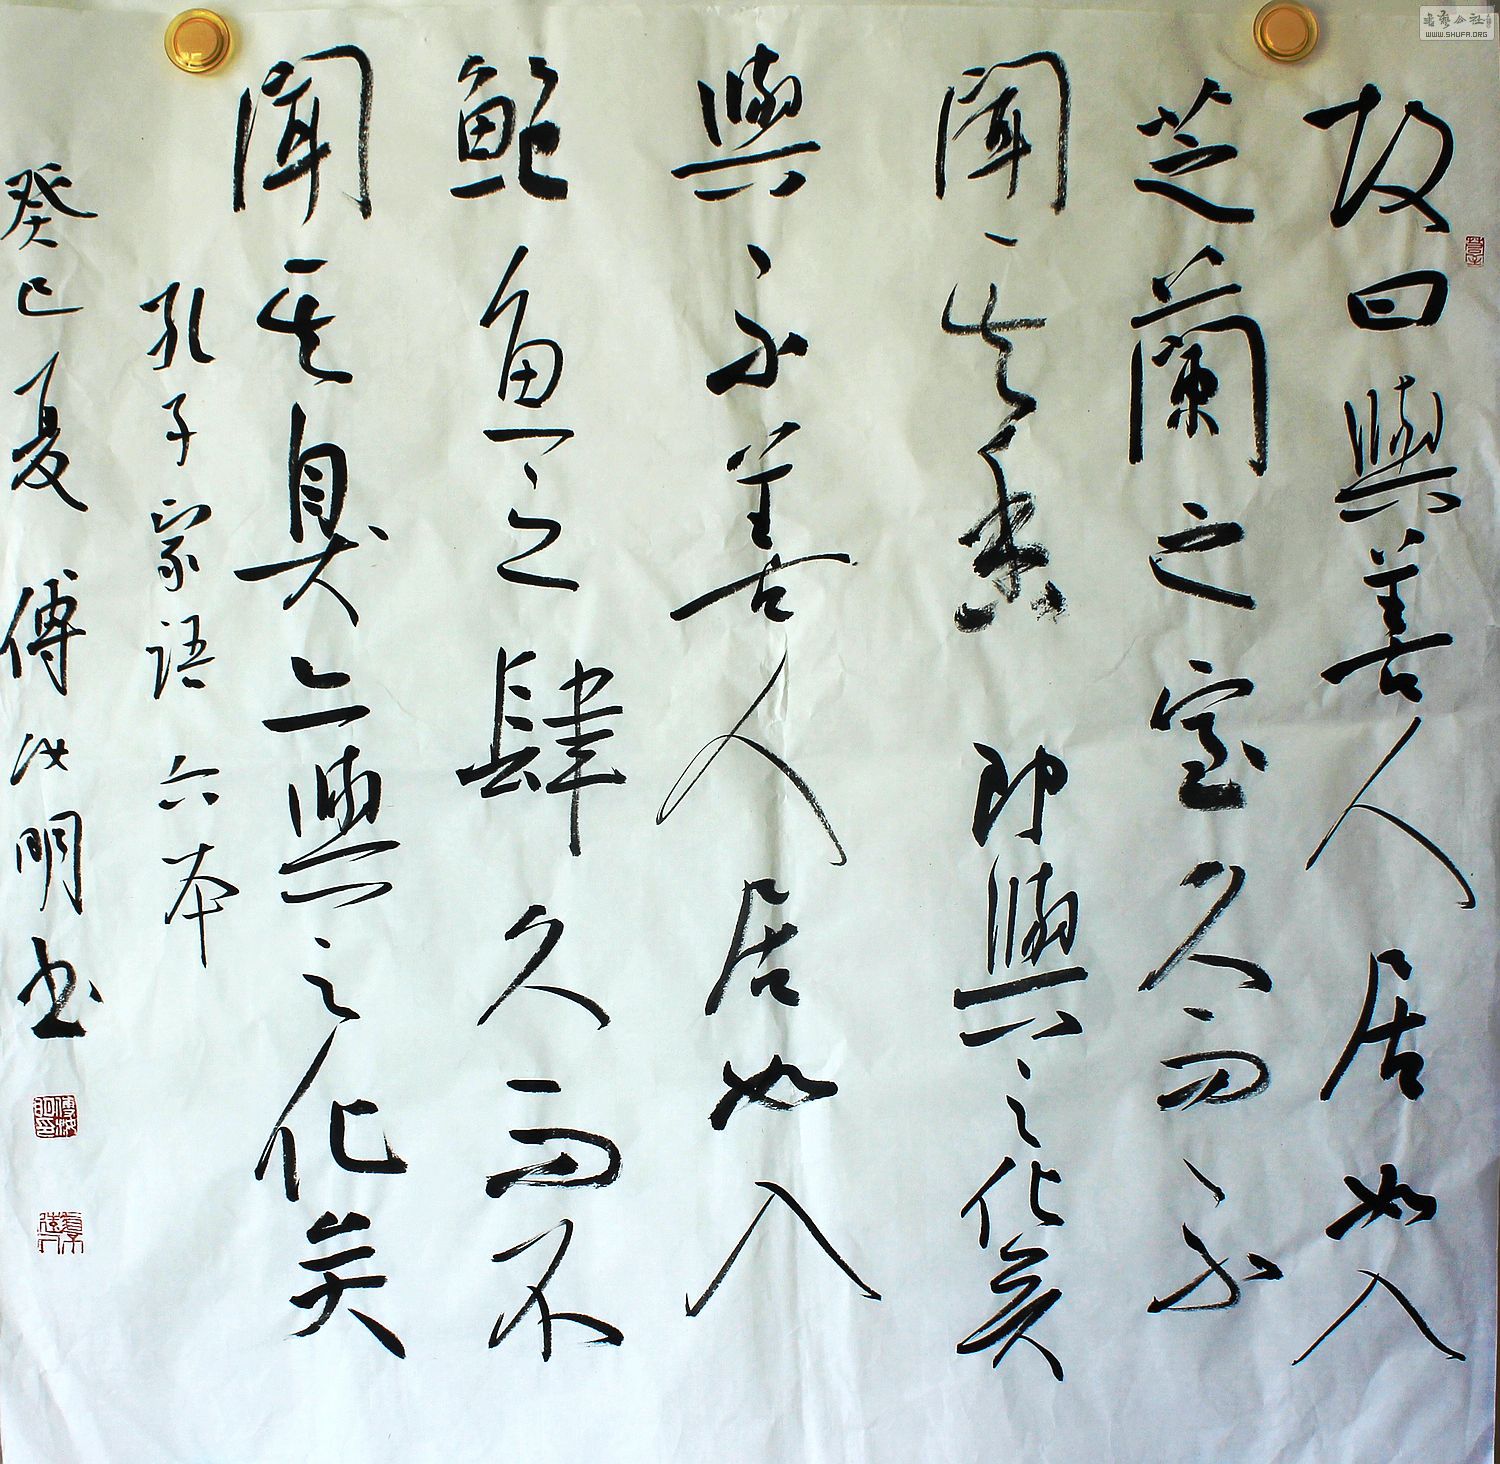 故曰與善人居如入
芝蘭之室久而不
聞其香即與之化矣
與不善人居如入
鮑魚之肆久而不
聞其臭亦與之化矣
孔子家语六本
癸巳夏 傅汝明书
书艺公社
WWW.SHUFA.ORG